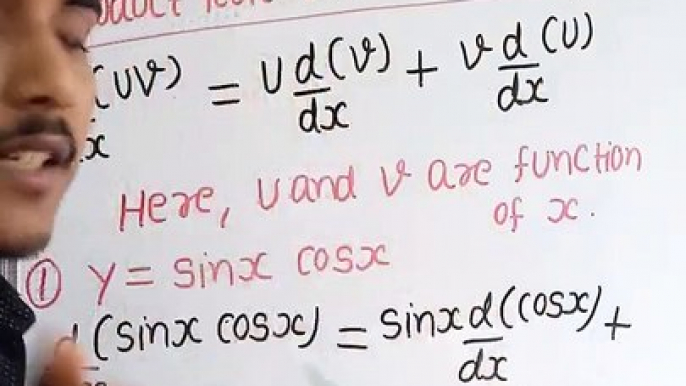 (UV) = U d/dx (V) + V d/dx (U)
x
Here, U and V are function
of x.
① y = sinx cosx
(sinx cosx) = sinx d/dx (cosx) +